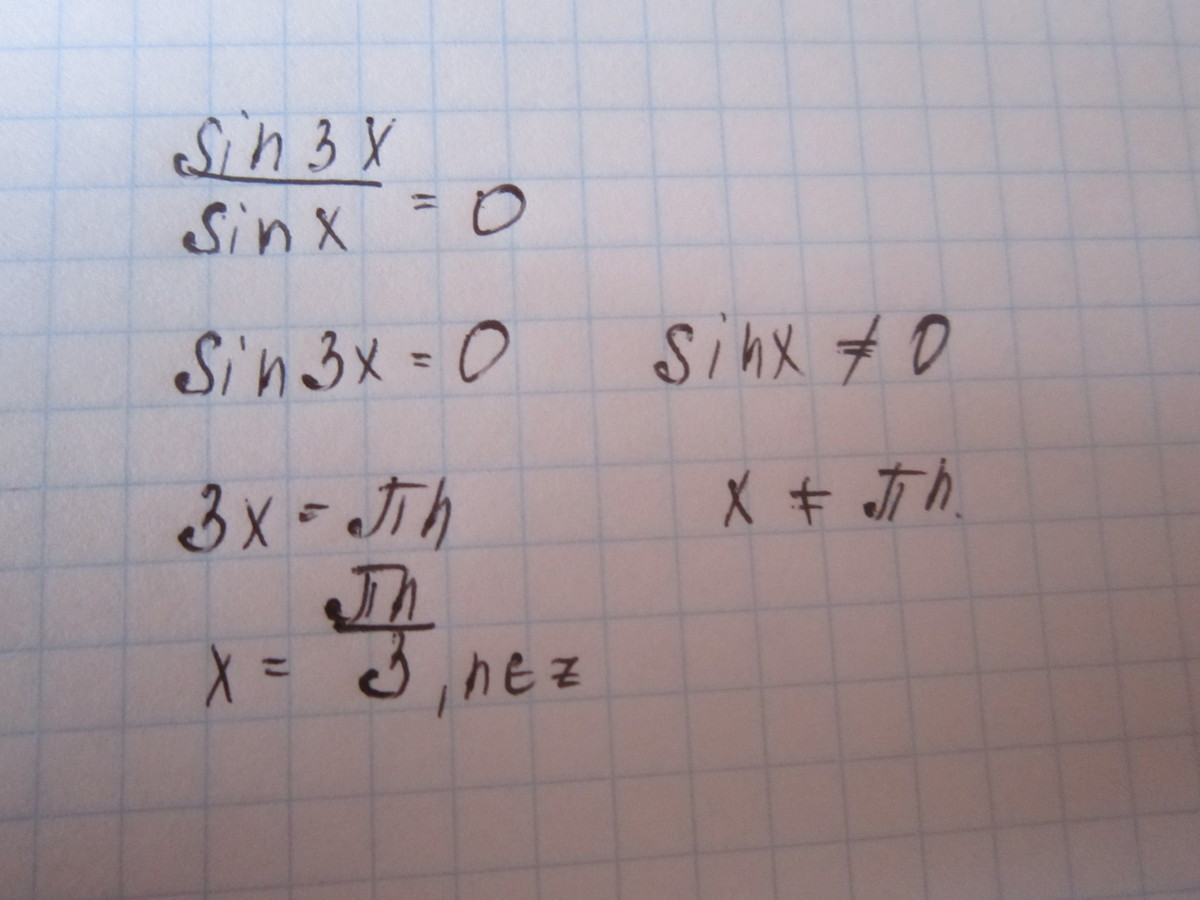 sin 3x / sin x = 0
sin 3x = 0    sin x ≠ 0
3x = πn    x ≠ πn.
x = πn / 3, n ∈ z